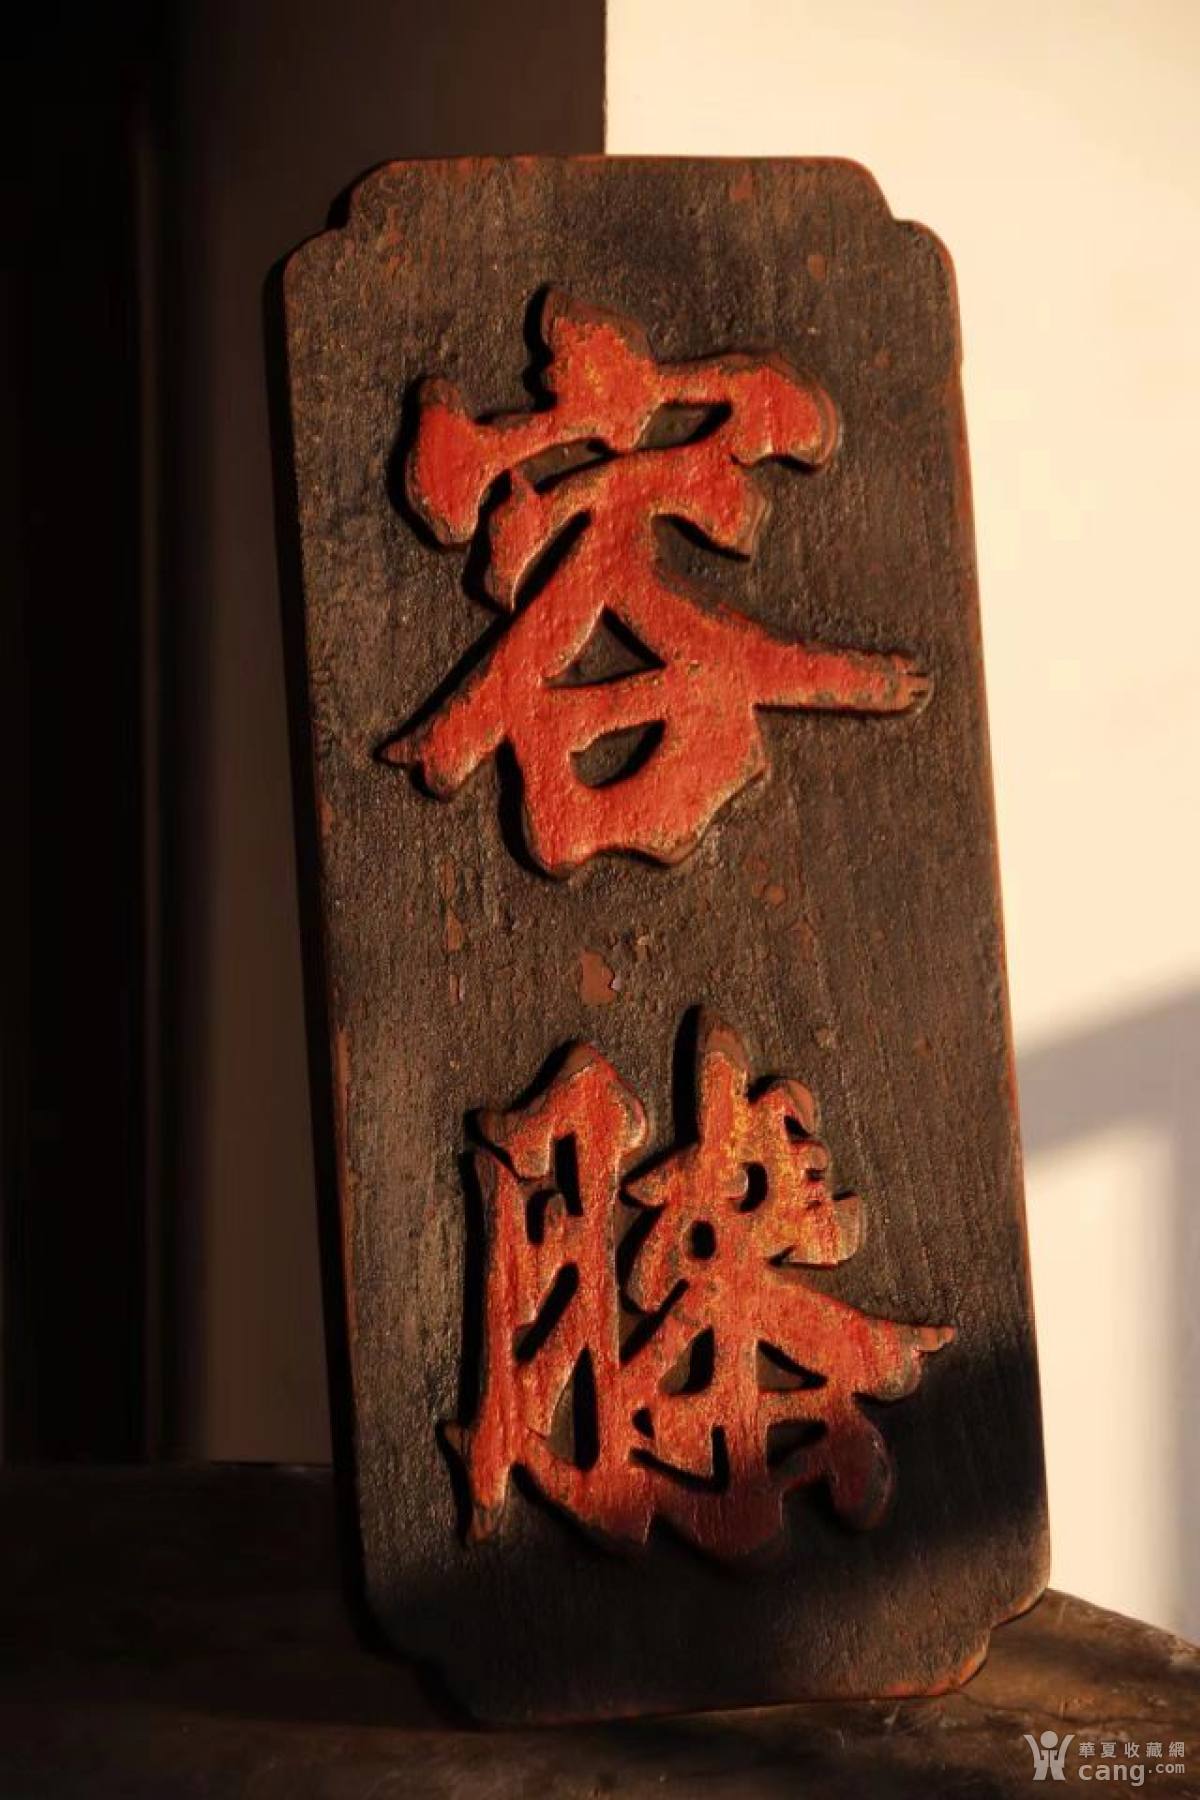 容
膝
華夏收藏網
cang.com